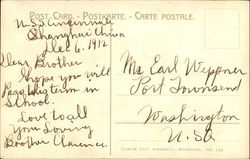 POST CARD. - POSTKARTE. - CARTE POSTALE.
U.S.S. Cincinnati
Shanghai China
Dec 6, 1912
Dear Brother
Hope you will
Pass this term in
School.
Love to all
Your Loving
Brother Clarence.
Mr Earl Weppner
Port Townsend
Washington
U.S.